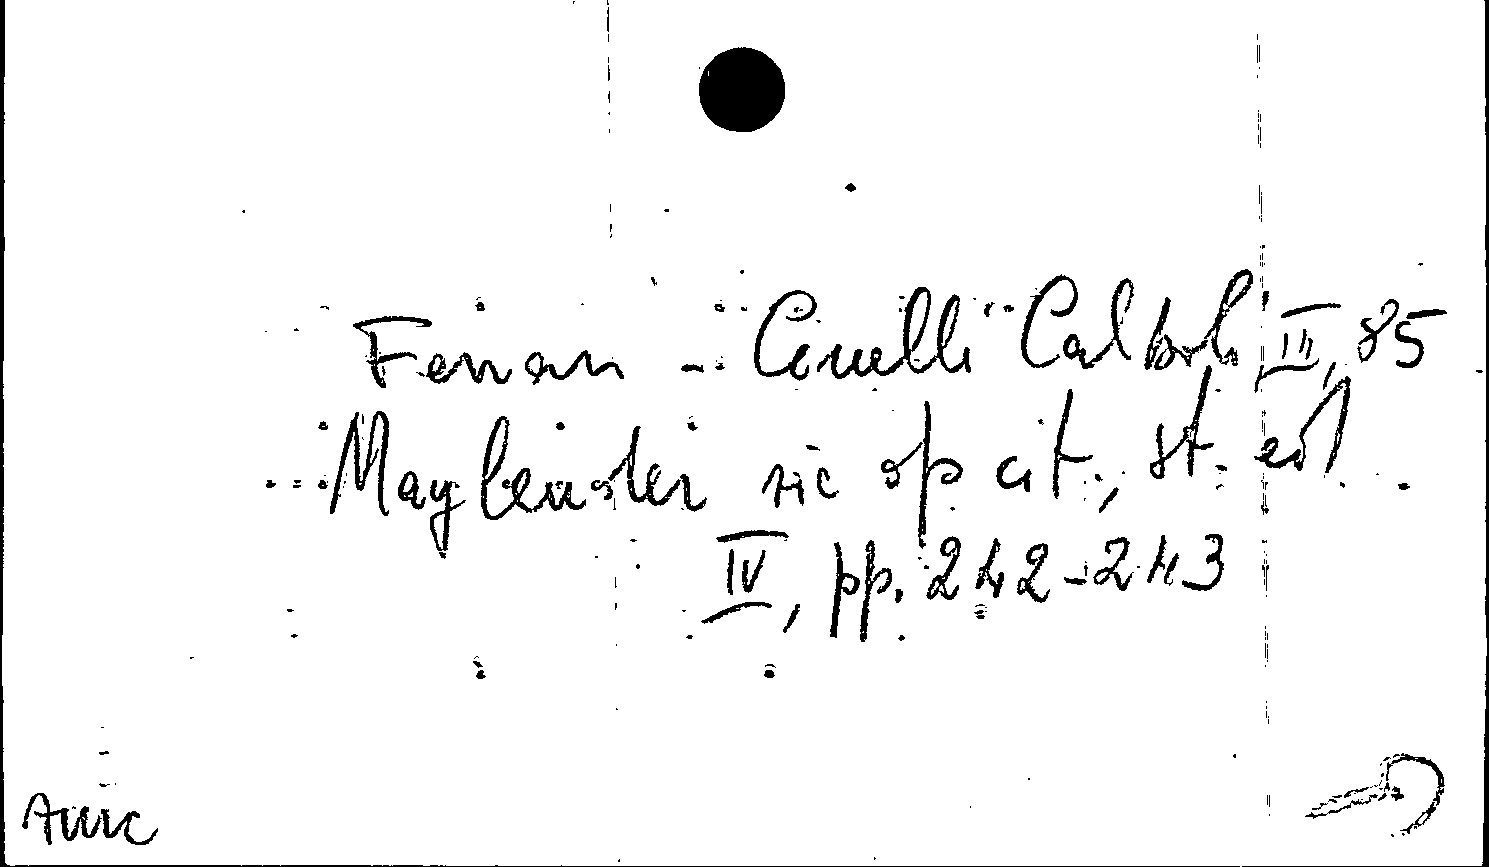 Ferrari - Cornelli Calboli III, 85
Maylender sic op cit., st. ed.
IV, pp. 242-243
AMC